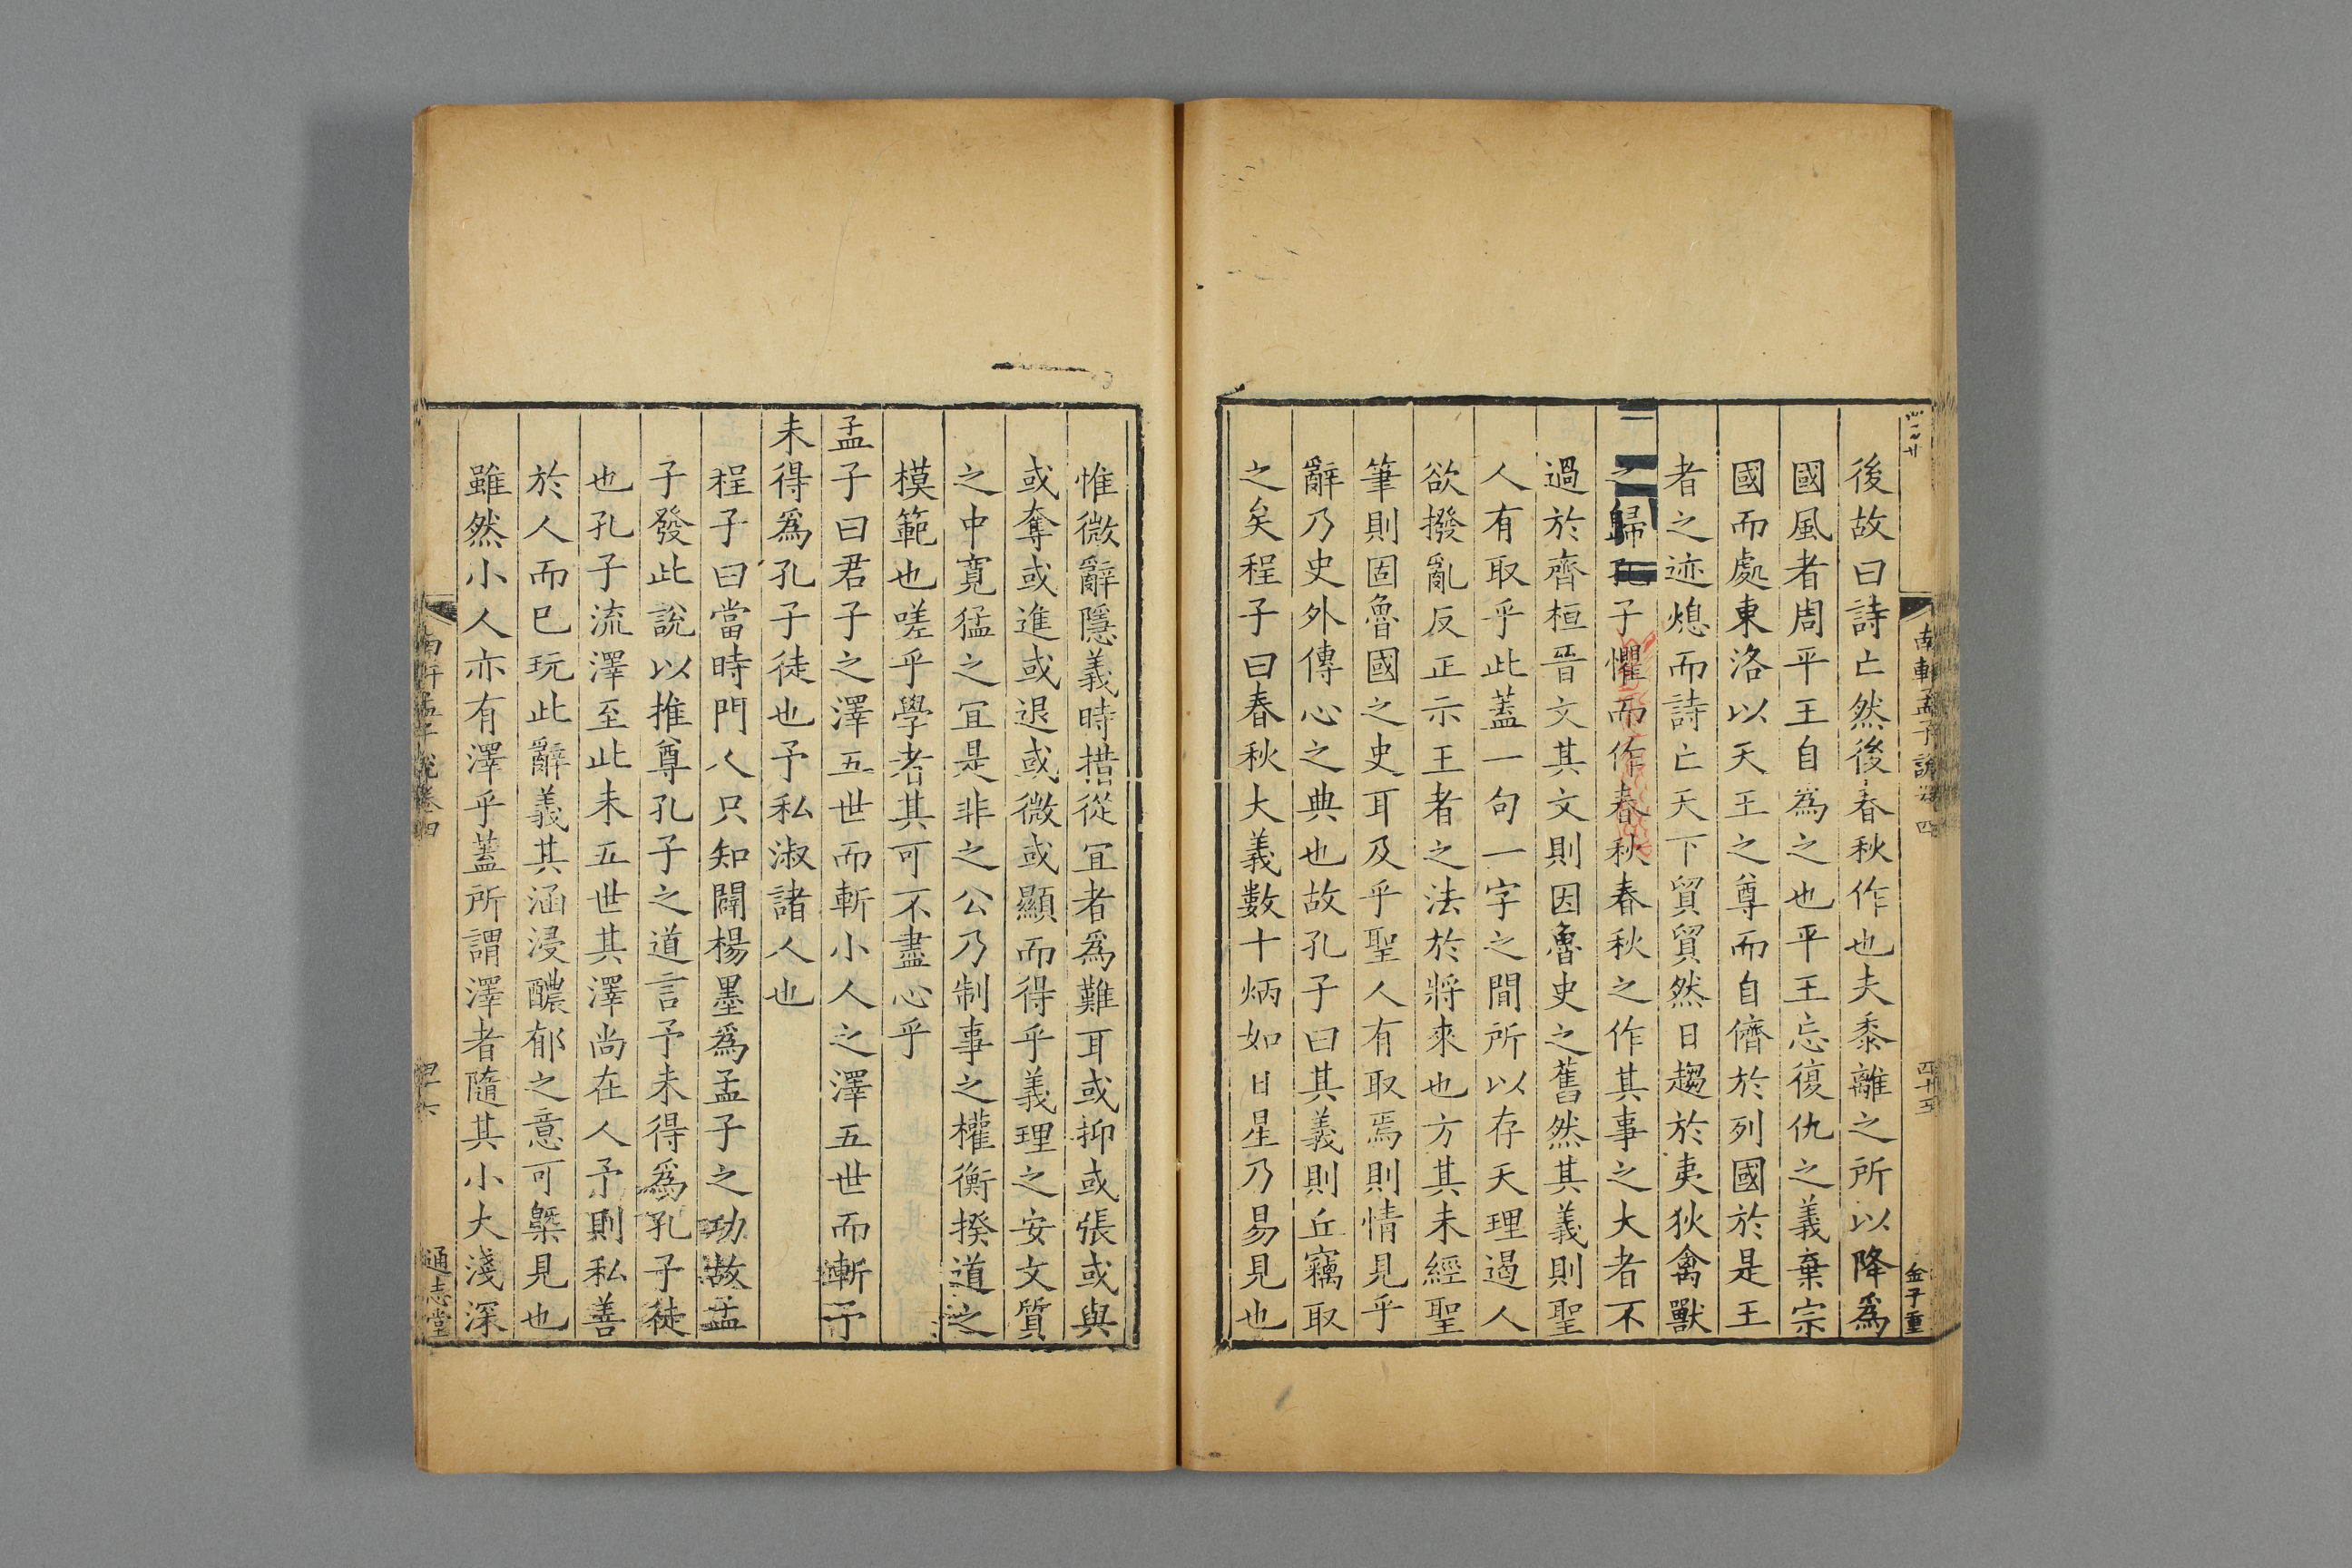 後故曰詩亡然後春秋作也夫黍離之所以降爲
國風者周平王自為之也平王忘復仇之義棄宗
國而處東洛以天王之尊而自儕於列國於是王
者之迹熄而詩亡天下貿貿然日趨於夷狄禽獸
之歸孔子懼而作春秋春秋之作其事之大者不
過於齊桓晉文其文則因魯史之舊然其義則聖
人有取乎此蓋一句一字之間所以存天理遏人
欲撥亂反正示王者之法於將來也方其未經聖
筆則固魯國之史耳及乎聖人有取焉則情見乎
辭乃史外傳心之典也故孔子曰其義則丘竊取
之矣程子曰春秋大義數十炳如日星乃易見也
南軒孟子說卷四
四十五
金子重
惟微辭隱義時措從宜者爲難耳或抑或張或與
或奪或進或退或微或顯而得乎義理之安文質
之中寛猛之宜是非之公乃制事之權衡揆道之
模範也嗟乎學者其可不盡心乎
孟子曰君子之澤五世而斬小人之澤五世而斬予
未得爲孔子徒也予私淑諸人也
程子曰當時門人只知闢楊墨爲孟子之功故孟
子發此說以推尊孔子之道言予未得爲孔子徒
也孔子流澤至此未五世其澤尚在人予則私善
於人而已玩此辭義其涵浸醲郁之意可槩見也
雖然小人亦有澤乎蓋所謂澤者隨其小大淺深
南軒孟子說卷四
四十六
通志堂